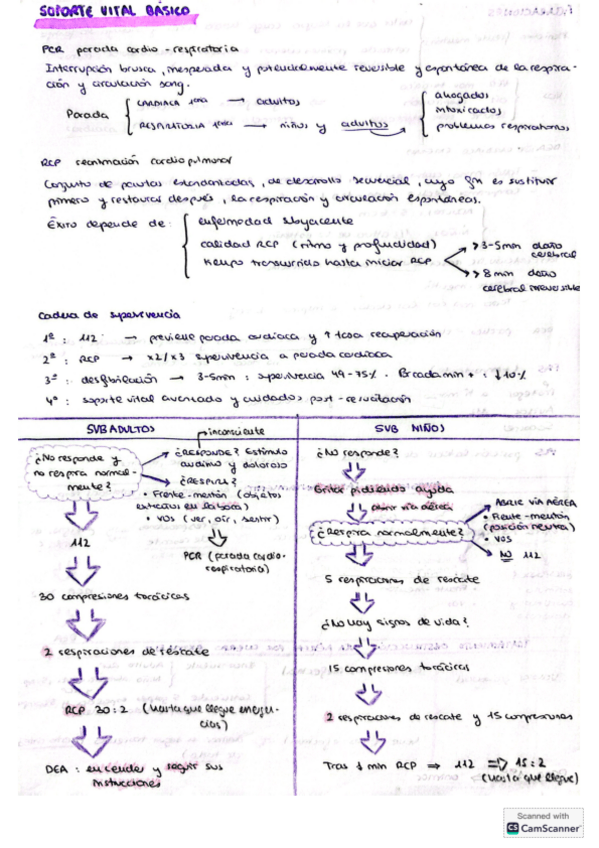 SOPORTE VITAL BÁSICO
PCR parada cardio-respiratoria
Interrupción brusca, inesperada y potencialmente reversible y espontánea de la respira-
ción y circulación sang.
Parada
CARDIACA 1aria → adultos
RESPIRATORIA 1aria → niños y adultos
ahogados
intoxicados
problemas respiratorios
RCP reanimación cardiopulmonar
Conjunto de pautas estandarizadas, de desarrollo secuencial, cuyo fin es sustituir
primero y restaurar después, la respiración y circulación espontáneas.
Éxito depende de:
enfermedad subyacente
calidad RCP (ritmo y profundidad)
tiempo transcurrido hasta iniciar RCP
> 3-5min daño
cerebral
> 8 min daño
cerebral irreversible
Cadena de supervivencia
1º : 112 → previene parada cardiaca y ↑ tasa recuperación
2º : RCP → x2/x3 supervivencia a parada cardiaca
3º : desfibrilación → 3-5min : supervivencia 49-75%. Por cada min + : ↓10%
4º : soporte vital avanzado y cuidados post-resucitación
SVB ADULTOS
inconsciente
¿No responde y
no respira normal-
mente?
¿RESPONDE? Estímulo
auditivo y doloroso
¿RESPIRA?
• Frente-mentón (objetos
extraños en la boca)
• VOS (ver, oír, sentir)
PCR (parada cardio-
respiratoria)
112
30 compresiones torácicas
2 respiraciones de rescate
RCP 30:2 (hasta que llegue emergen-
cias)
DEA : encender y seguir sus
instrucciones
SVB NIÑOS
¿No responde?
Gritar pidiendo ayuda
abrir vía aérea
¿Respira normalmente?
ABRIR VÍA AÉREA
• Frente-mentón
(posición neutra)
• VOS
NO 112
5 respiraciones de rescate
¿No hay signos de vida?
15 compresiones torácicas
2 respiraciones de rescate y 15 compresiones
Tras 1 min RCP ⇒ 112 ⇒ 15:2
(hasta que llegue)
Scanned with
CS CamScanner